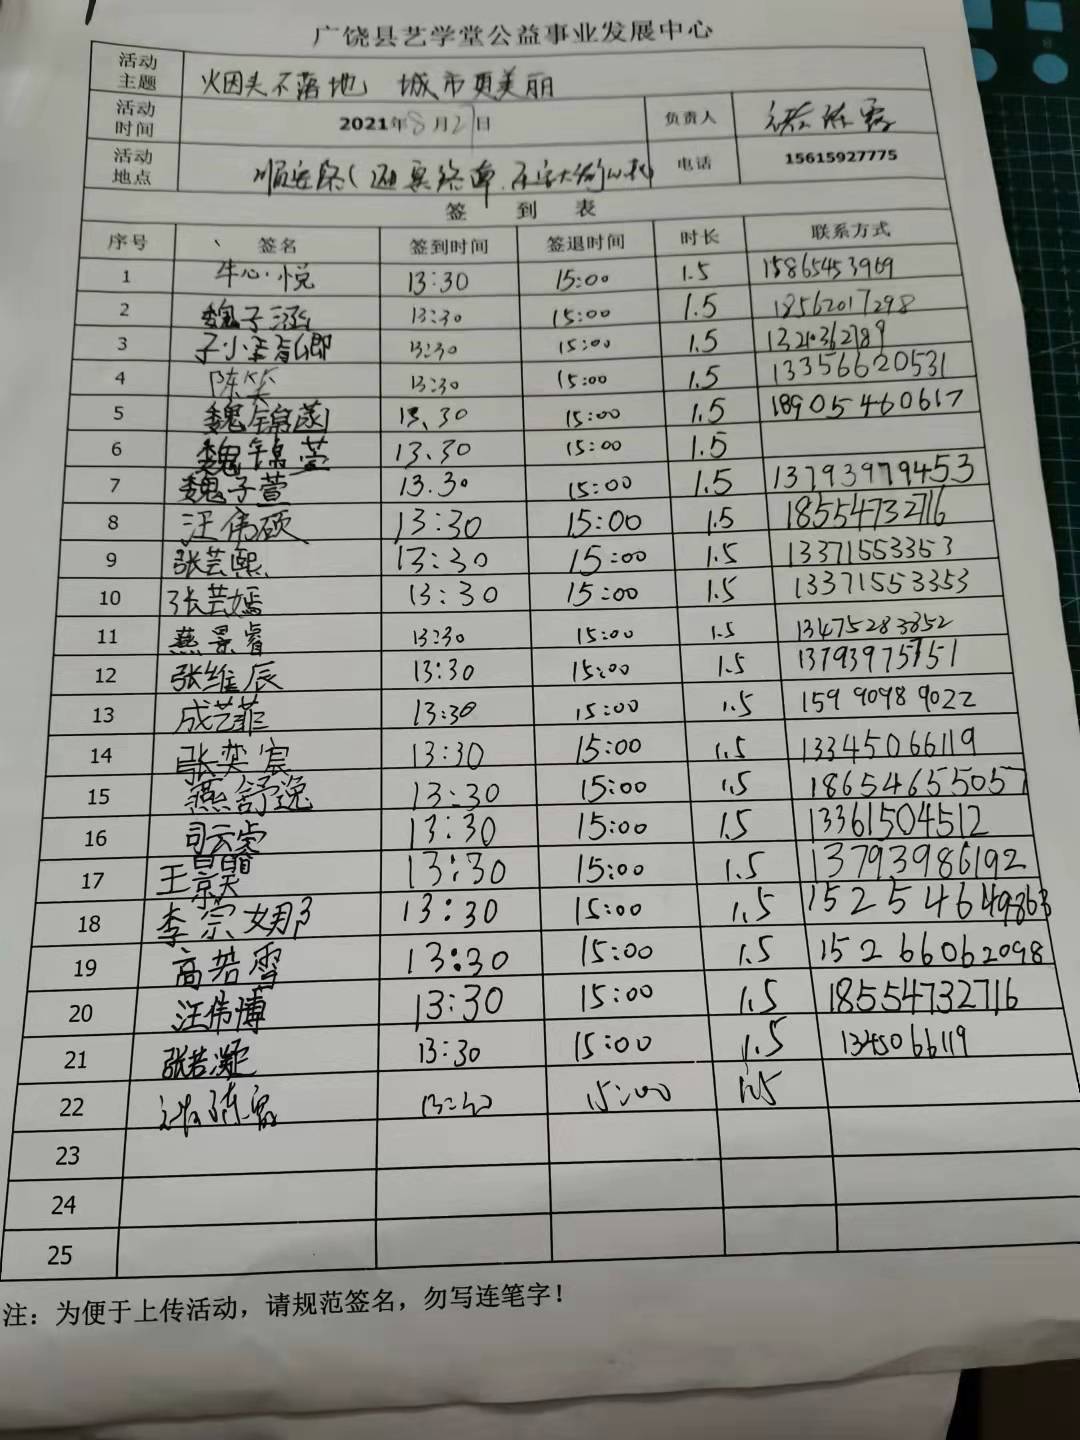 广饶县艺学堂公益事业发展中心
活动主题 烟头不落地 城市更美丽
活动时间 2021年8月27日 负责人
活动地点 顺安路( 电话 15615927775
签 到 表
序号 签名 签到时间 签退时间 时长 联系方式
1 牛心悦 13:30 15:00 1.5 15865453969
2 魏子涵 13:30 15:00 1.5 18562017298
3 13:30 15:00 1.5
4 陈笑 13:30 15:00 1.5 13356620531
5 魏锦菡 13.30 15:00 1.5 18905460617
6 魏锦萱 13.30 15:00 1.5
7 魏子萱 13.30 15:00 1.5 13793979453
8 汪伟硕 13:30 15:00 1.5 18554732716
9 张芸熙 13:30 15:00 1.5 13371553353
10 张芸嫣 13:30 15:00 1.5 13371553353
11 燕景睿 13:30 15:00 1.5 13475283852
12 张维辰 13:30 15:00 1.5 13793975751
13 成艺菲 13:30 15:00 1.5 15990989022
14 张奕宸 13:30 15:00 1.5 13345066119
15 燕舒逸 13:30 15:00 1.5 18654655057
16 司云 13:30 15:00 1.5 13361504512
17 王 13:30 15:00 1.5 13793986192
18 李宗娜 13:30 15:00 1.5 15254649863
19 高若雪 13:30 15:00 1.5 15266062098
20 汪伟博 13:30 15:00 1.5 18554732716
21 张若凝 13:30 15:00 1.5 1345066119
22 13:30 15:00 1.5
23
24
25
注：为便于上传活动，请规范签名，勿写连笔字！